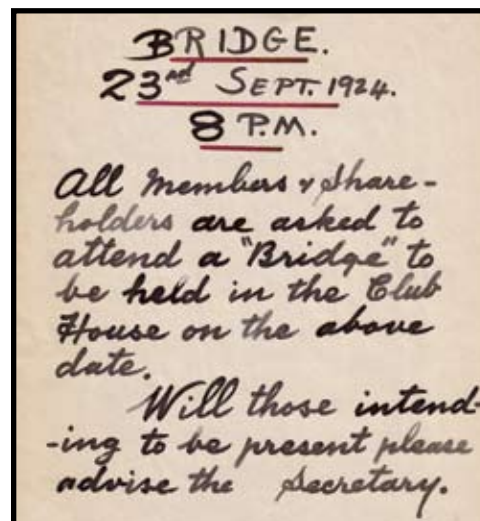 BRIDGE.
23nd SEPT. 1924.
8 P.M.
All Members & Share-
holders are asked to
attend a "Bridge" to
be held in the Club
House on the above
date.
Will those intend-
-ing to be present please
advise the Secretary.